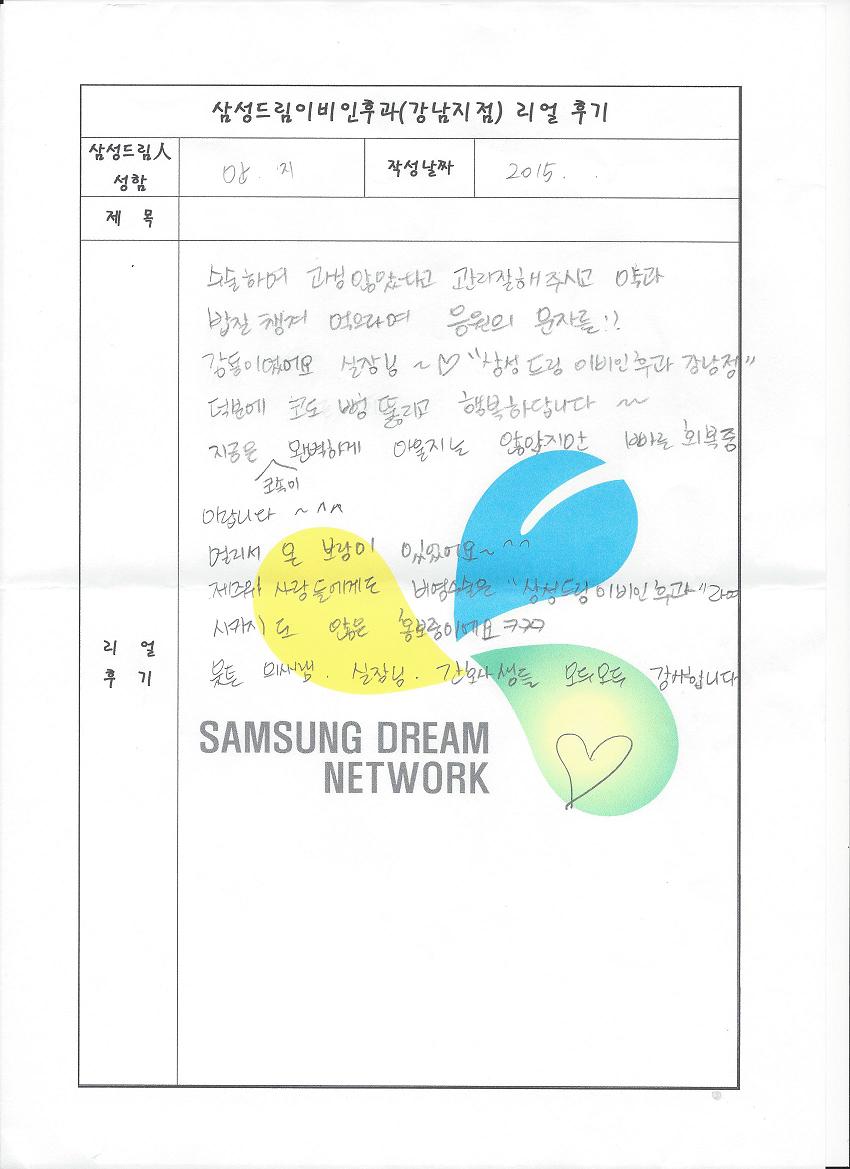 삼성드림이비인후과(강남지점) 리얼 후기
삼성드림人
성함
작성날짜
2015.
제 목
수술하며 고생 않았다고 관리잘해주시고 약과
밥잘 챙겨 먹으라며 응원의 문자를!?
감동이였어요 실장님 ~ ♡ "삼성드림 이비인후과 강남점"
덕분에 코도 뻥 뚫리고 행복하답니다 ~
지금은 완벽하게 아물지는 않았지만 빠르 회복중
코속이
이랍니다 ~ ^^
멀리서 온 보람이 있었어요~ ^^
제주위 사람들에게도 비염수술은 "삼성드림이비인후과"라며
시키지도 않은 홍보중이에요 ㅋㅋㅋ
실장님. 간호사쌤들 모두모두 감사합니다
리 얼
후 기
SAMSUNG DREAM
NETWORK